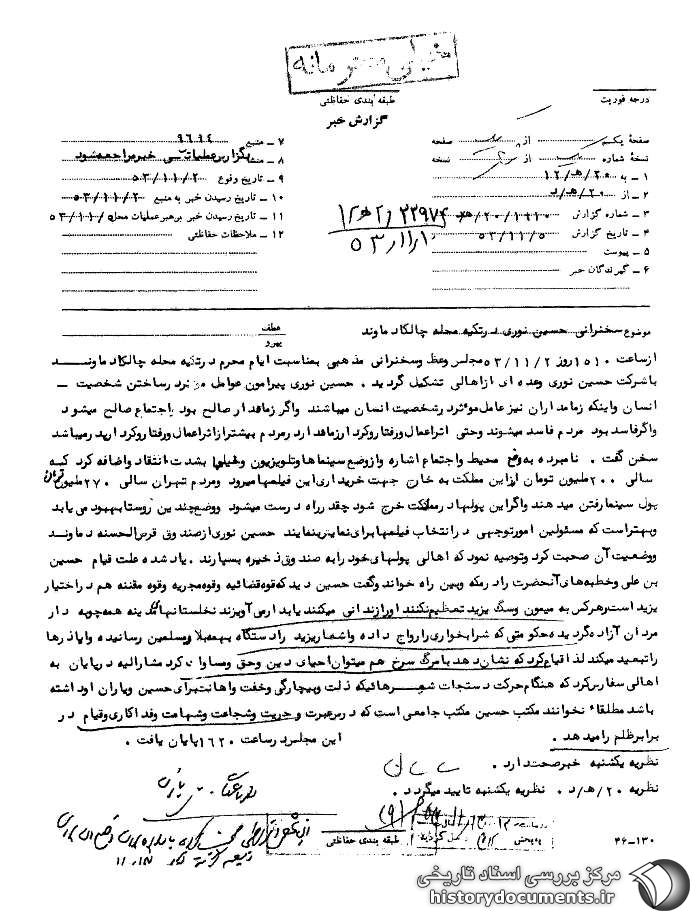 خیلی محرمانه
درجه فوریت
طبقه بندی حفاظتی
گزارش خبر
صفحه یکم از صفحه
نسخه شماره از نسخه
۱ – به ۱۲/ﻫ/۲۰
۲ – از ۲۰/ﻫ/د
۳ – شماره گزارش
۴ – تاریخ گزارش ۵۳/۱۱/۵
۵ – پیوست
۶ – گیرندگان خبر
۷ – منبع ۹۶۹۴
۸ – منشأ بگزارش عملیاتی خبر مراجعه شود
۹ – تاریخ وقوع ۵۳/۱۱/۲
۱۰ – تاریخ رسیدن خبر به منبع ۵۳/۱۱/۲
۱۱ – تاریخ رسیدن خبر برهبر عملیات محل ۵۳/۱۱/۵
۱۲ – ملاحظات حفاظتی
۵۳/۱۱/۱۰
موضوع سخنرانی حسین نوری درتکیه محله چالکا دماوند
عطف
پیرو
ازساعت ۱۵۱۰ روز ۵۳/۱۱/۲ مجلس وعظ وسخنرانی مذهبی بمناسبت ایام محرم درتکیه محله چالکا دماونــد
با شرکت حسین نوری وعده ای ازاهالی تشکیل گردید . حسین نوری پیرامون عوامل موثر درساختن شخصیت –
انسان واینکه زمامداران نیز عامل موثردرشخصیت انسان میباشند واگر زمامدار صالح بود اجتماع صالح میشود
واگرفاسد بود مردم فاسد میشوند وحتی اثراعمال ورفتاروکردارزمامدارد رمردم بیشترازاثراعمال ورفتاروکردارپدرمیباشد
سخن گفت . نامبرده به وضع محیط واجتماع اشاره وازوضع سینماها وتلویزیون وفیلمها بشدت انتقاد واضافه کرد کــه
سالی ۲۰۰ ملیون تومان ازاین مملکت به خارج جهت خریداری این فیلمها میرود ومردم تهران سالی ۲۷۰ ملیون تومان
پول سینما رفتن میدهند واگراین پولها درمملکت خرج شود چقدرراه درست میشود ووضع چندین روستا بهبود می یابد
وبهتراست که مسئولین امورتوجهی درانتخاب فیلمها برای نمایش بنمایند حسین نوری ازصندوق قرض الحسنه دماوند
ووضعیت آن صحبت کرد وتوصیه نمود که اهالی پولهای خود رابه صندوق ذخیره بسپارند . یاد شده علت قیام حسین
بن علی وخطبه های آنحضرت رادرمکه وبین راه خواند وگفت حسین دید که قوه قضائیه وقوه مجریه وقوه مقننه هم دراختیار
یزید است وهرکس به میمون وسگ یزید تعظیم نکند اورازندانی میکنند یابدارمی آویزند نخلستانهای مدینه همه چوبه دار
مردان آزاده گردیده حکومتی که شرابخواری رارواج داده واشعاریزید رادستگاه بهمه بلاد مسلمین رسانیده واباذرها
راتبعید میکند لذا قیام کرد که نشان دهد با مرگ سرخ هم میتوان احیای دین وحق ومساوات کرد مشارالیه درپایان به
اهالی سفارش کرد که هنگام حرکت دستجات شعــرهائیکه ذلت وبیچارگی وخفت واهانت برای حسین ویاران اوداشته
باشد مطلقاً نخوانند مکتب حسین مکتب جامعی است که درس عبرت و حریت وشجاعت وشهامت وفداکاری وقیام در
برابرظلم رامیدهد . این مجلس درساعت ۱۶۲۰ پایان یافت .
نظریه یکشنبه خبرصحت دارد .
نظریه ۲۰/ﻫ/د . نظریه یکشنبه تایید میگردد .
طبقه بندی حفاظتی
۴۶–۱۳۰
مرکز بررسی اسناد تاریخی
historydocuments.ir